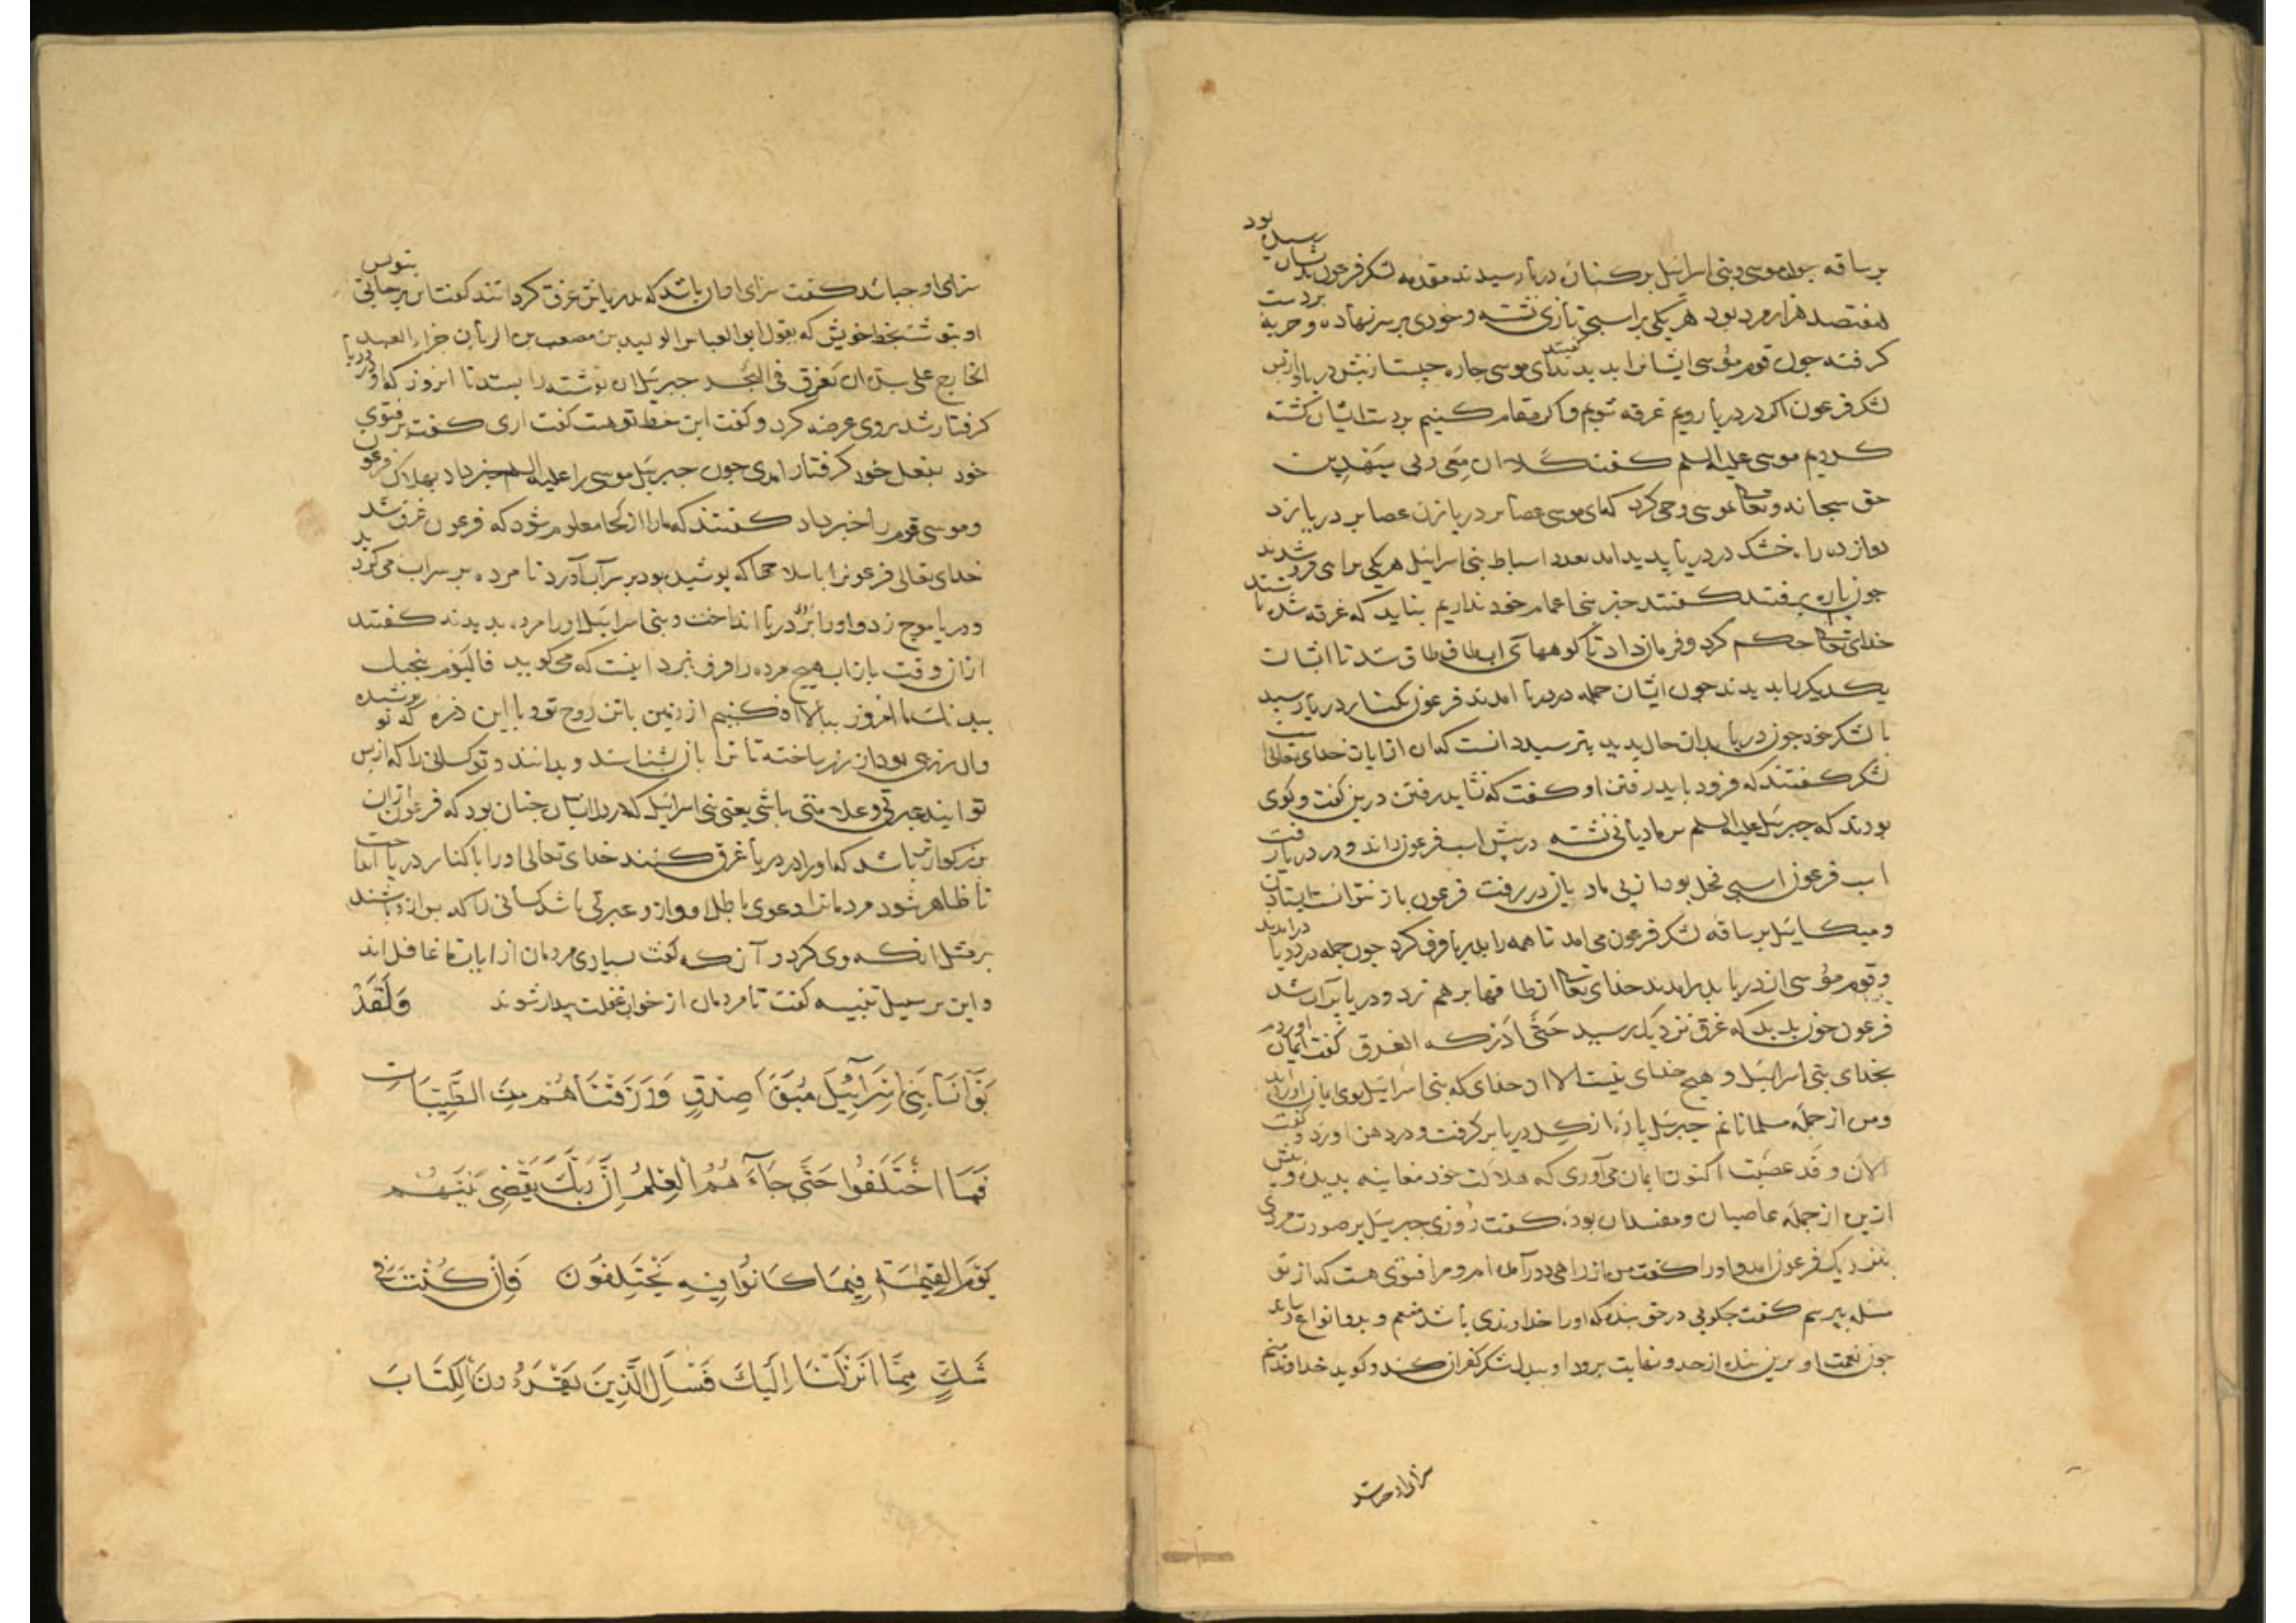 بر ساقه جون موسی و بنی اسرائیل بر کنان دریا رسیدند مقدمه لشکر فرعون بدیشان رسید بود
هفتصد هزار مرد بود هر یکی بر اسبی تازی نشسته و خودی بر سر نهاده و حربه بر دست
کرفته جون قوم موسی ایشانرا بدیدند گفتند ای موسی جاره جیست از پیش دریا و از پس
لشکر فرعون اکر در دریا رویم غرقه شویم و اکر مقام کنیم بر دست ایشان کشته
کردیم موسی علیه السلم کفت کلا ان معی ربی سیهدین
حق سبحانه وتعالی بموسی وحی کرد که ای موسی عصا بر دریا زن عصا بر دریا زد
دوازده راه خشک در دریا پدید امد بعدد اسباط بنی اسرائیل هر یکی براهی فرو شدند
جون پاره برفتند کفتند خبر بنی اعمام خود نداریم نباید که غرقه شده باشند
خدای تعالی حکم کرد و فرمان داد تا کوههای آب طاق طاق شد تا ایشان
یکدیکر را بدیدند جون ایشان جمله در دریا امدند فرعون بکنار دریا رسید
با لشکر خود جون دریا بدان حال بدید بترسید دانست که ان از ایات خدای تعالی است
لشکر کفتند که فرود باید رفتن او کفت که نشاید رفتن درین کفت و کوی
بودند که جبرئیل علیه السلم بر مادیانی نشسته در پیش اسب فرعون راند و در دریا رفت
اسب فرعون اسبی فحل بود از پی مادیان در رفت فرعون باز نتوانست ایستادن
و میکائیل بر ساقه لشکر فرعون می امد تا همه را بدریا فرو کرد جون جمله در دریا درامدند
و قوم موسی از دریا بدرامدند خدای تعالی ان طاقها بر هم زد و دریا بر آن شد
فرعون جون بدید که غرق نزدیک رسید حتی اذا ادرکه الغرق کفت ایمان اوردم
بخدای بنی اسرائیل و هیچ خدای نیست الا ان خدای که بنی اسرائیل بوی ایمان اورده اند
و من از جمله مسلمانانم جبرئیل پاره از کل دریا بر کرفت و در دهن او زد و کفت
الان وقد عصیت اکنون ایمان می آوری که هلاکت خود معاینه بدیدی و پیش
ازین از جمله عاصیان و مفسدان بودی کفت روزی جبرئیل بر صورت مردی
بنزدیک فرعون امد و اورا کفت من از راهی دور آمده ام و مرا فتوی هست که از تو
مسله بپرسم کفت جکویی در حق بنده که اورا خداوندی باشد منعم و بدو انواع
جون نعمت او برین بنده از حد و نهایت برود او ببدل شکر کفران کند و کوید خداوند منم
سزای او جه باشد
سزای او جه باشد کفت سزای او ان باشد که بدریاش غرق کردانند کفت این بر جایی بنویس
او بنوشت بخط خویش که یقول ابو العباس الولید بن مصعب بن الریان جزاء العبد
الخارج علی سیده ان یغرق فی البحر جبرئیل ان نوشته را بستد تا ان روز که او در دریا
کرفتار شد بروی عرضه کرد و کفت این خط تو هست کفت اری کفت بر فتوی
خود بفعل خود کرفتار امدی جون جبرئیل موسی را علیه السلم خبر داد بهلاک فرعون
و موسی قوم را خبر داد کفتند که مارا از کجا معلوم شود که فرعون غرق شد
خدای تعالی فرعون را با سلاحها که پوشیده بود بر سر آب آورد تا مرده بر سر اب می کردید
و دریا موج زد و اورا بر در دریا انداخت و بنی اسرائیل اورا مرده بدیدند کفتند
از ان وقت باز اب هیچ مرده را فرو نبرد اینست که می کوید فالیوم ننجیک
ببدنک ما امروز ببالا افکنیم از زمین با تن روح تو و با این ذره که تو پوشیده
وان زرهی بود از زر ساخته تا ترا باز شناسند و بدانند و تو کسانی را که از پس
تو ایند عبرتی و علامتی باشی یعنی بنی اسرائیل که در دل ایشان جنان بود که فرعون از ان
بزرکوارتر باشد که اورا در دریا غرق کنند خدای تعالی اورا با کنار دریا انداخت
تا ظاهر شود مردمانرا دعوی باطل او و از و عبرتی باشد کسانی را که پس از و باشند
بر مثل انک وی کرد و آنک کفت بسیاری مردمان از ایات ما غافل اند
و این بر سبیل تنبیه کفت تا مردمان از خواب غفلت بیدار شوند وَلَقَدْ
بَوَّأْنَا بَنِي إِسْرَآئِيلَ مُبَوَّأَ صِدْقٍ وَرَزَقْنَاهُمْ مِنَ الطَّيِّبَاتِ
فَمَا اخْتَلَفُوا حَتَّى جَآءَهُمُ الْعِلْمُ إِنَّ رَبَّكَ يَقْضِي بَيْنَهُمْ
يَوْمَ الْقِيٰمَةِ فِيمَا كَانُوا فِيهِ يَخْتَلِفُونَ فَإِنْ كُنْتَ فِي
شَكٍّ مِمَّا أَنْزَلْنَا إِلَيْكَ فَسْأَلِ الَّذِينَ يَقْرَءُونَ الْكِتَابَ